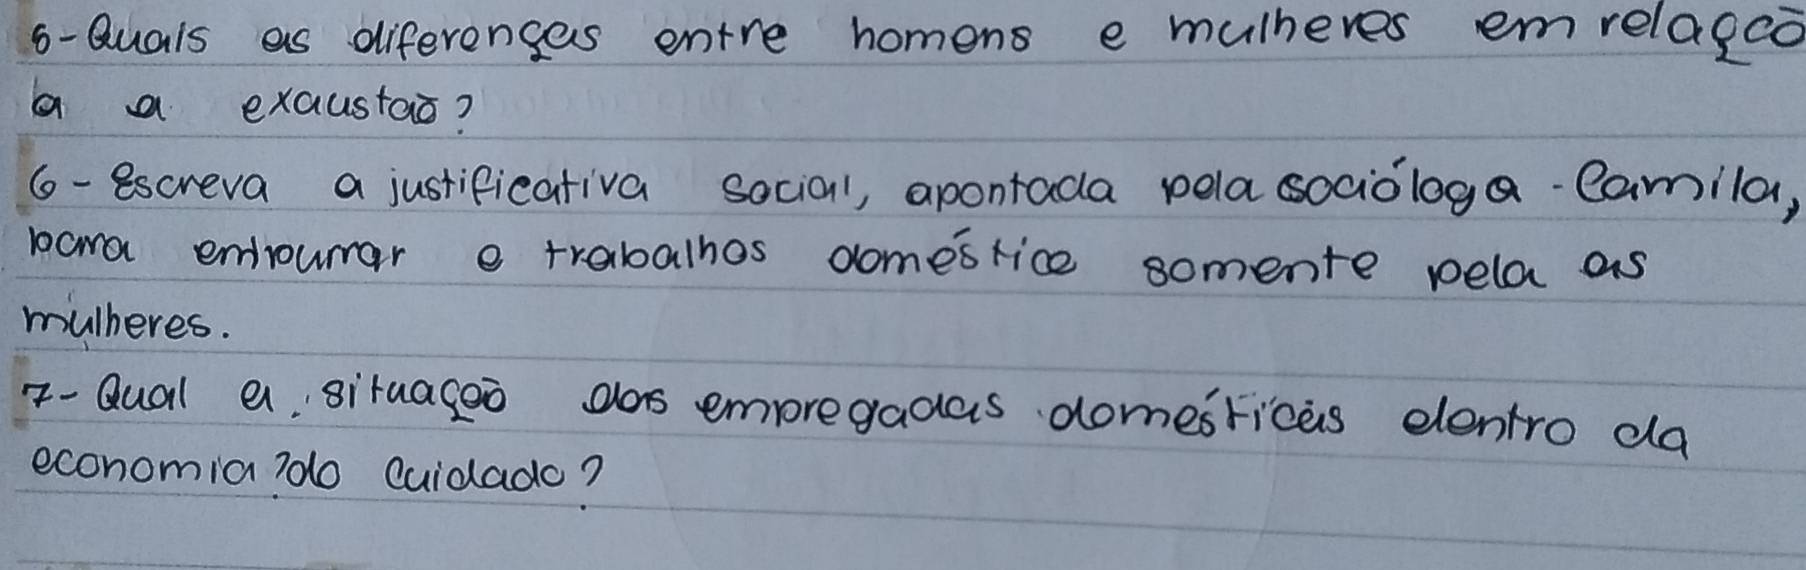 5-Quais as diferenças entre homens e mulheres em relaçcõ
a a exaustaõ?
6- Escreva a justificativa social, apontada pela socióloga Camila,
para empurrar o trabalhos doméstico somente pela as
mulheres.
7- Qual a situaçaõ das empregadas domésticas dentro da
economia?do cuidado?